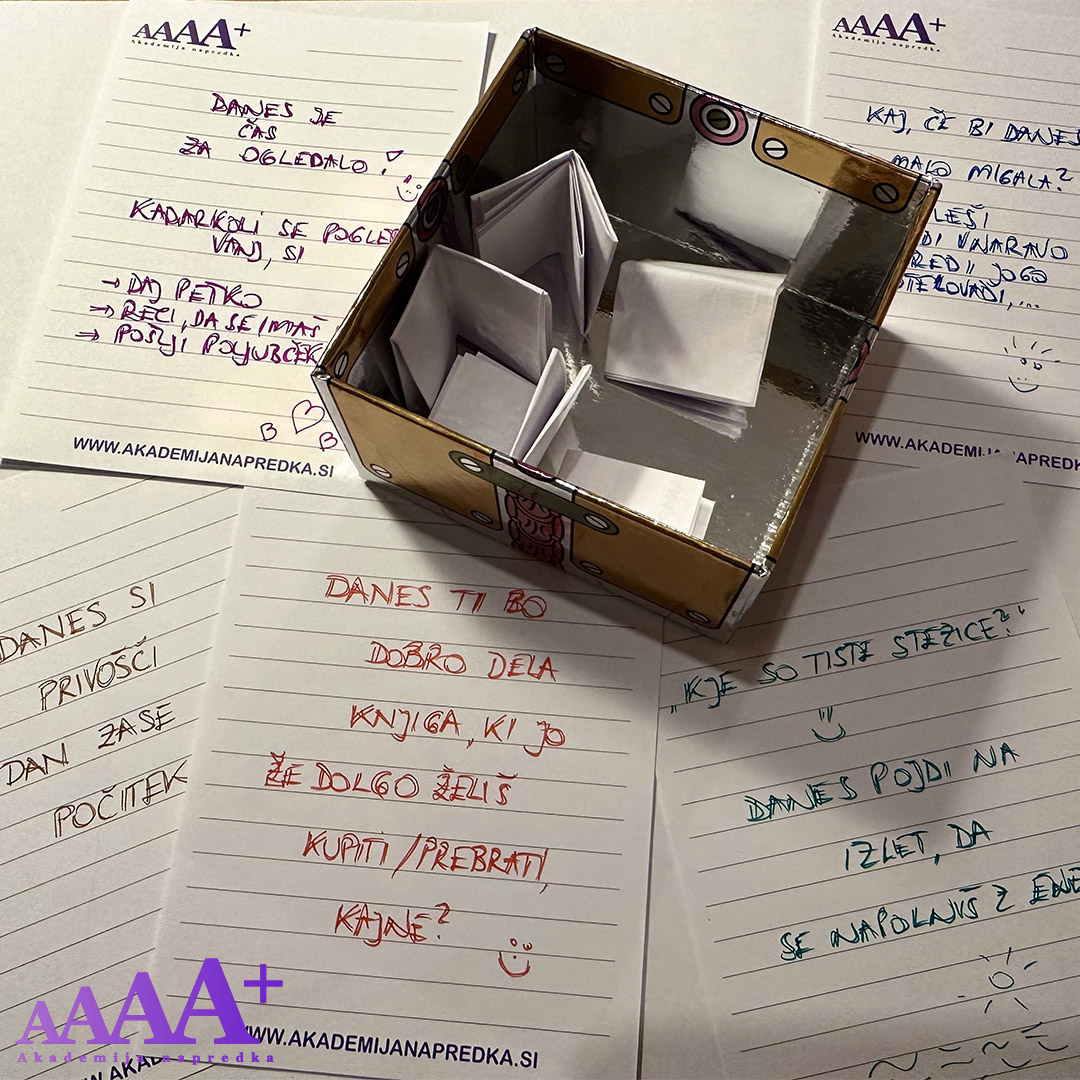 AAAA+
Akademija napredka
DANES JE
ČAS
ZA OGLEDALO!
KADARKOLI SE POGLE
VANJ, SI
→ DAJ PETKO
→ REČI, DA SE IMAŠ
→ POŠLJI POLJUBČEK
WWW.AKADEMIJANAPREDKA.SI
AAAA+
Akademija napredka
KAJ, ČE BI DANES
MALO MIGALA?
LEŠI
DI V NARAVO
REDI JOGO
TELOVADI,...
WWW.AKADEMIJANAPREDK
DANES SI
PRIVOŠČI
DAN ZASE
POČITEK
DANES TI BO
DOBRO DELA
KNJIGA, KI JO
ŽE DOLGO ŽELIŠ
KUPITI / PREBRATI,
KAJNE?
WWW.AKADEMIJANAPREDKA.SI
„KJE SO TISTE STEZICE?"
DANES POJDI NA
IZLET, DA
SE NAPOLNIŠ Z ENE
AAAA+
Akademija napredka
WW.AKAD